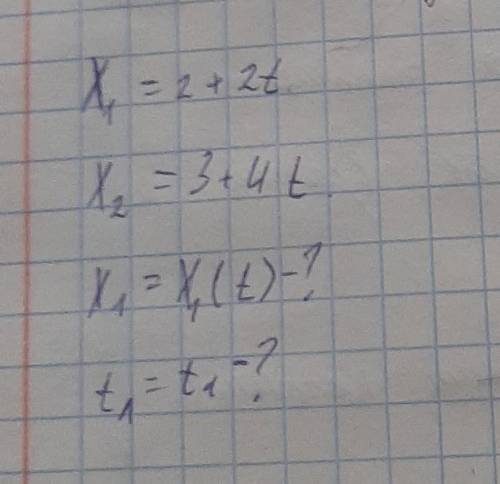 X₁ = 2 + 2t
X₂ = 3 + 4t
X₁ = X₁(t) - ?
t₁ = t₁ - ?